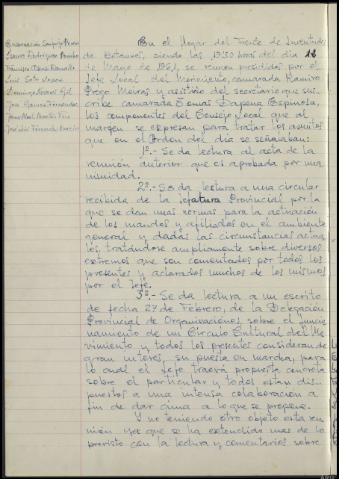 En el Hogar del Frente de Juventudes
de Betanzos, siendo las 19'30 horas del dia 12
de Mayo de 1961, se reunen presididos por el
Jefe Local del Movimiento, camarada Ramiro
Prego Meiras y asistido del secretario que sus-
cribe camarada Tomás Dapena Espinosa,
los componentes del Consejo Local que al
margen se expresan para tratar los asuntos
que en el Orden del dia se señalaban:
1º.- Se da lectura al acta de la
reunión anterior que es aprobada por una-
nimidad.
2º.- Se da lectura a una circular
recibida de la Jefatura Provincial por la
que se dan unas normas para la actuación
de los mandos y afiliados en el ambiente
general y dadas las circunstancias actua-
les, tratándose ampliamente sobre diversos
extremos que son comentados por todos los
presentes y aclarados muchos de los mismos
por el Jefe.
3º.- Se da lectura a un escrito
de fecha 27 de Febrero, de la Delegación
Provincial de Organizaciones sobre el funcio-
namiento de un Circulo Cultural del Mo-
vimiento y todos los presentes consideran de
gran interes, su puesta en marcha, para
lo cual el Jefe traerá propuesta concreta
sobre el particular y todos estan dis-
puestos a una intensa colaboración a
fin de dar cima a lo que se propone.
Y no teniendo otro objeto esta reu-
nión ya que se ha extendido mas de lo
previsto con la lectura y comentarios sobre